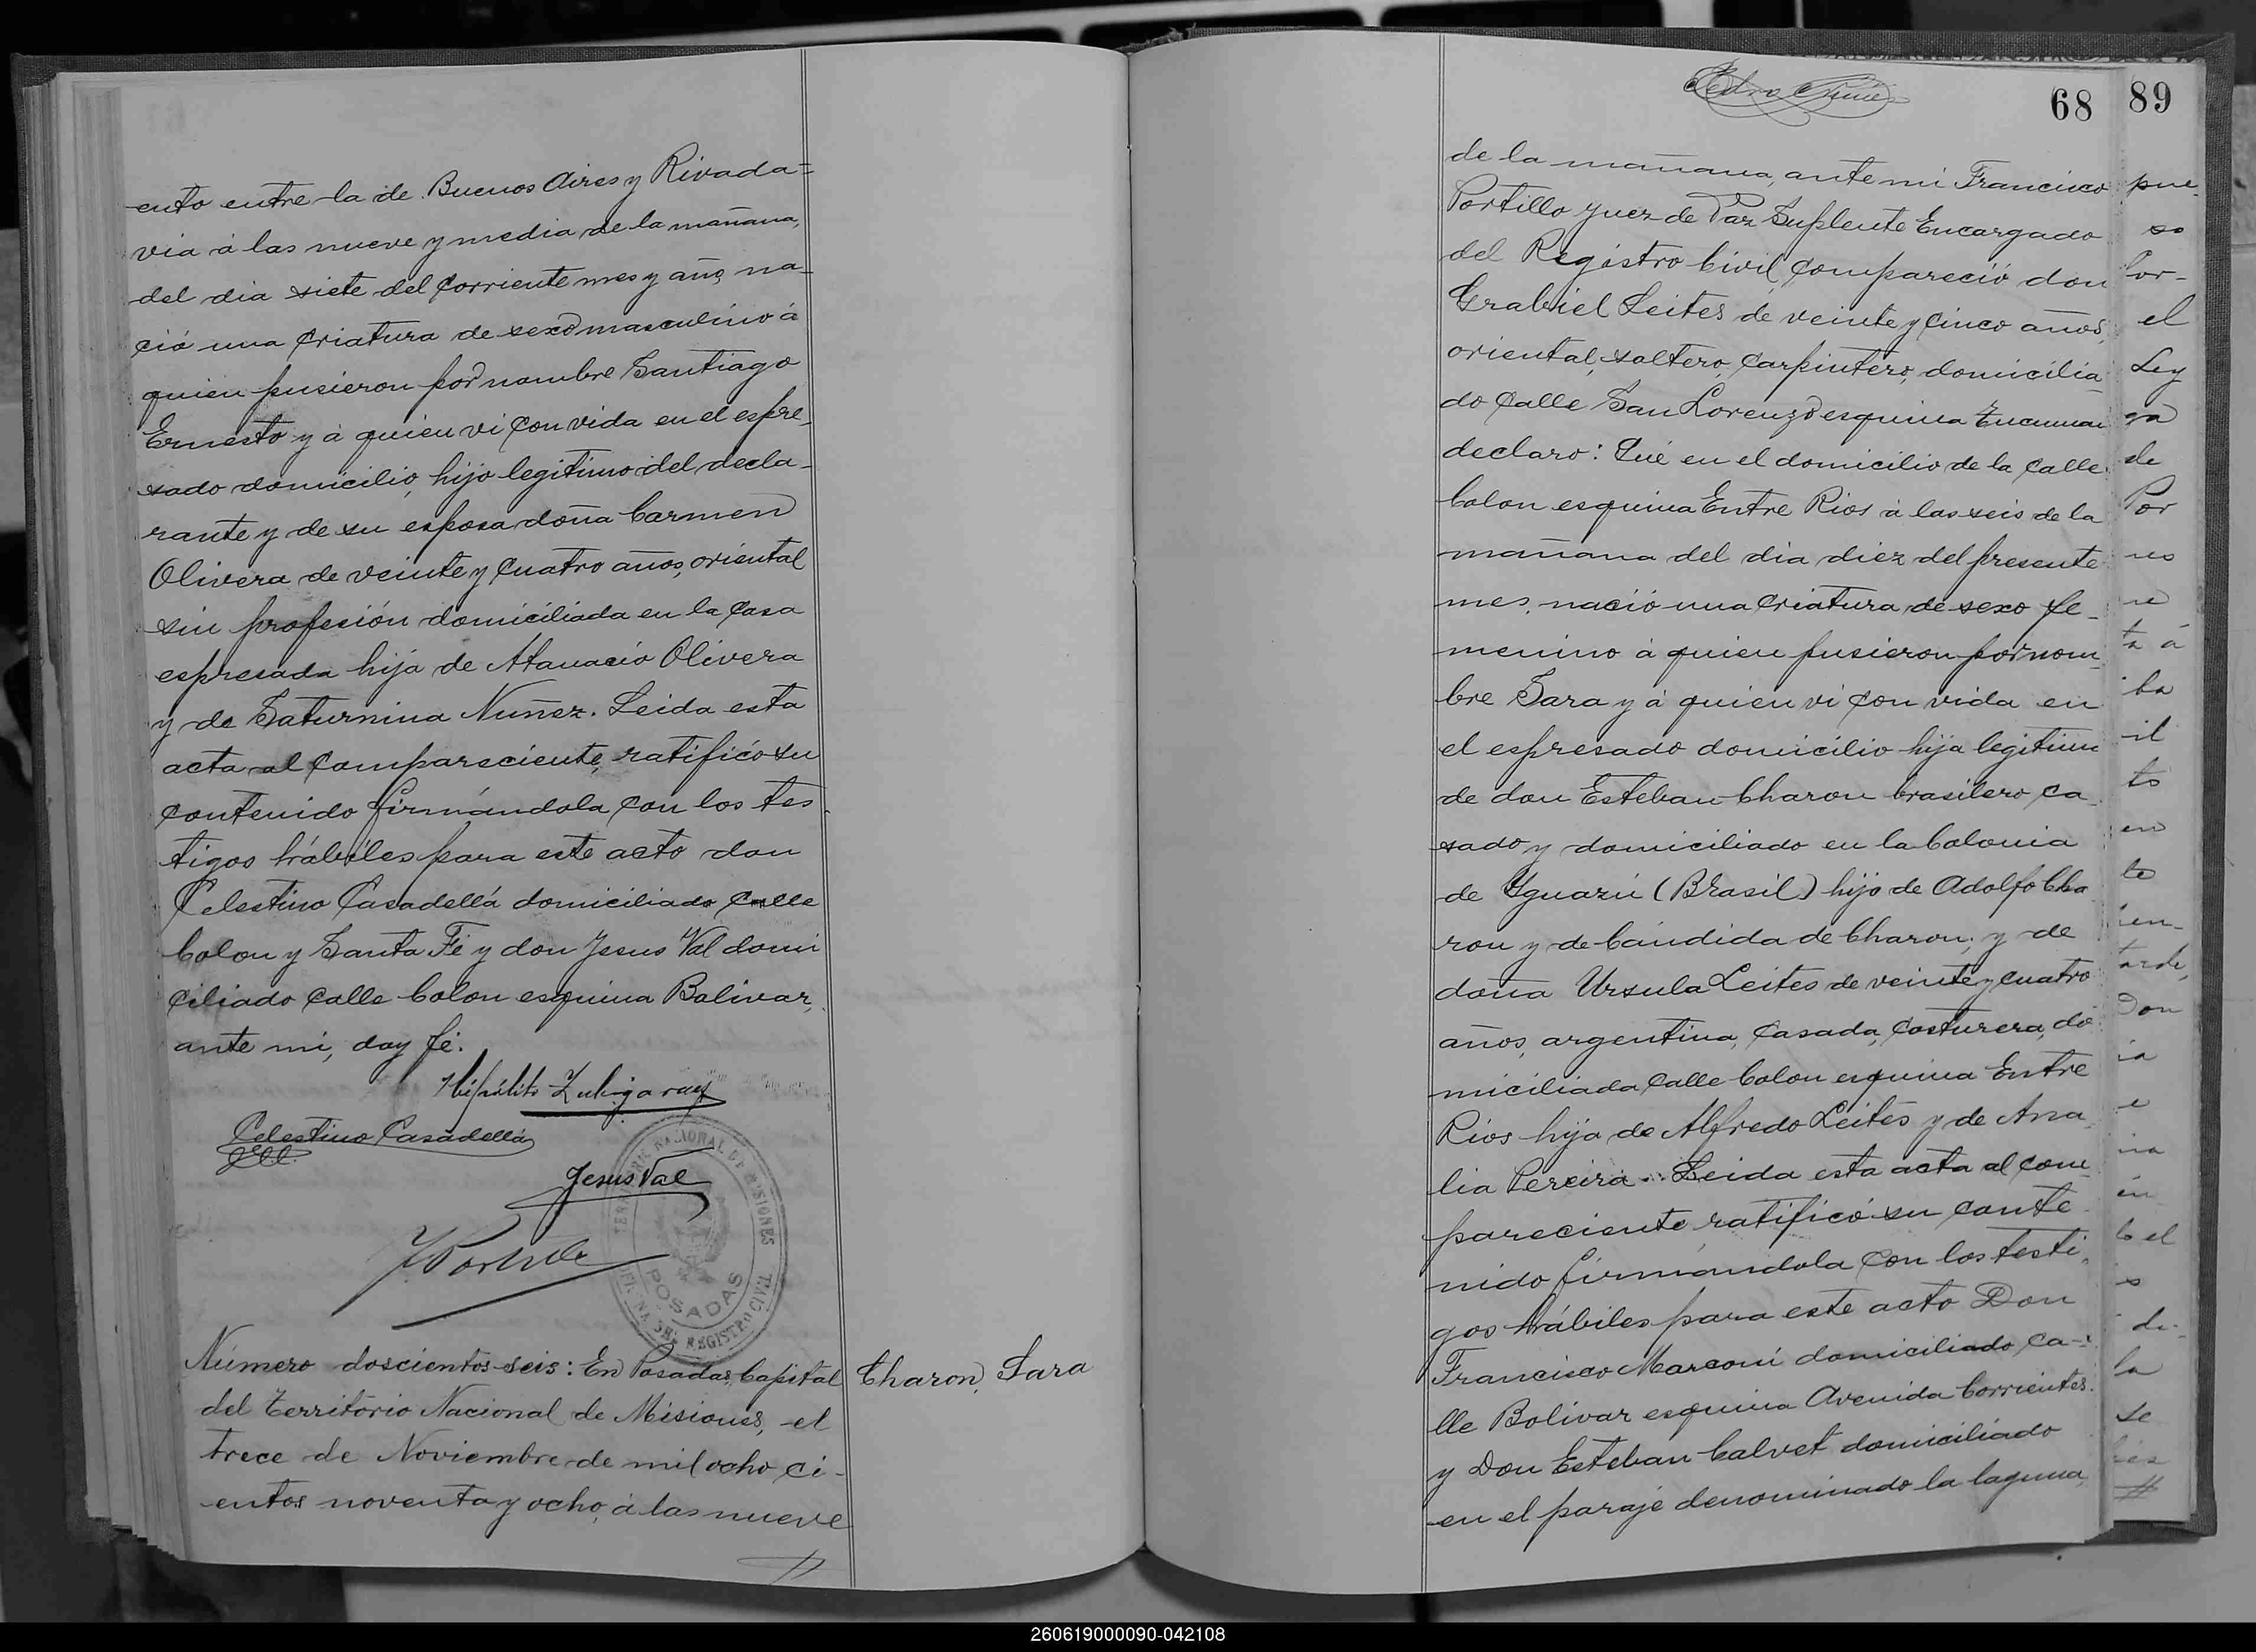 ento entre la de Buenos Aires y Rivada-
via á las nueve y media de la mañana,
del dia siete del corriente mes y año, na-
ció una criatura de sexo masculino á
quien pusieron por nombre Santiago
Ernesto y á quien vi con vida en el espre-
sado domicilio, hijo legitimo del decla-
rante y de su esposa doña Carmen
Olivera de veinte y cuatro años, oriental
sin profesión domiciliada en la casa
espresada hija de Atanacio Olivera
y de Saturnina Nuñez. Leida esta
acta al compareciente, ratificó su
contenido firmándola con los tes-
tigos hábiles para este acto don
Celestino Casadellá domiciliado calle
Colon y Santa Fé y don Jesus Val domi
ciliado calle Colon esquina Bolivar,
ante mi, doy fé.
Hipólito
Celestino Casadellá
Jesus Val
TERRITORIO NACIONAL DE MISIONES
POSADAS
OFICINA DEL REGISTRO CIVIL
Número doscientos seis: En Posadas, Capital
del Territorio Nacional de Misiones, el
trece de Noviembre de mil ocho ci-
entos noventa y ocho, á las nueve
Charon, Sara
68
de la mañana, ante mi Francisco
Portillo Juez de Paz Suplente Encargado
del Registro Civil, compareció don
Grabiel Leites de veinte y cinco años,
oriental, soltero, carpintero, domicilia
do calle San Lorenzo esquina Tucuman
declaro: Qué en el domicilio de la calle
Colon esquina Entre Rios á las seis de la
mañana del dia diez del presente
mes, nació una criatura de sexo fe-
menino á quien pusieron por nom-
bre Sara y á quien vi con vida en
el espresado domicilio hija legitima
de don Esteban Charon brasilero, ca-
sado y domiciliado en la Colonia
de Yguazú (Brasil) hijo de Adolfo Cha
ron y de Cándida de Charon; y de
doña Ursula Leites de veinte y cuatro
años, argentina, casada, costurera, do
miciliada calle Colon esquina Entre
Rios hija de Alfredo Leites y de Ana
lia Pereira. Leida esta acta al com
pareciente ratificó su conte
nido firmándola con los testi-
gos hábiles para este acto Don
Francisco Marconi domiciliado ca-
lle Bolivar esquina Avenida Corrientes
y Don Esteban Calvet domiciliado
en el paraje denominado la laguna,
89
el
Ley
de
Por
la
se
260619000090-042108